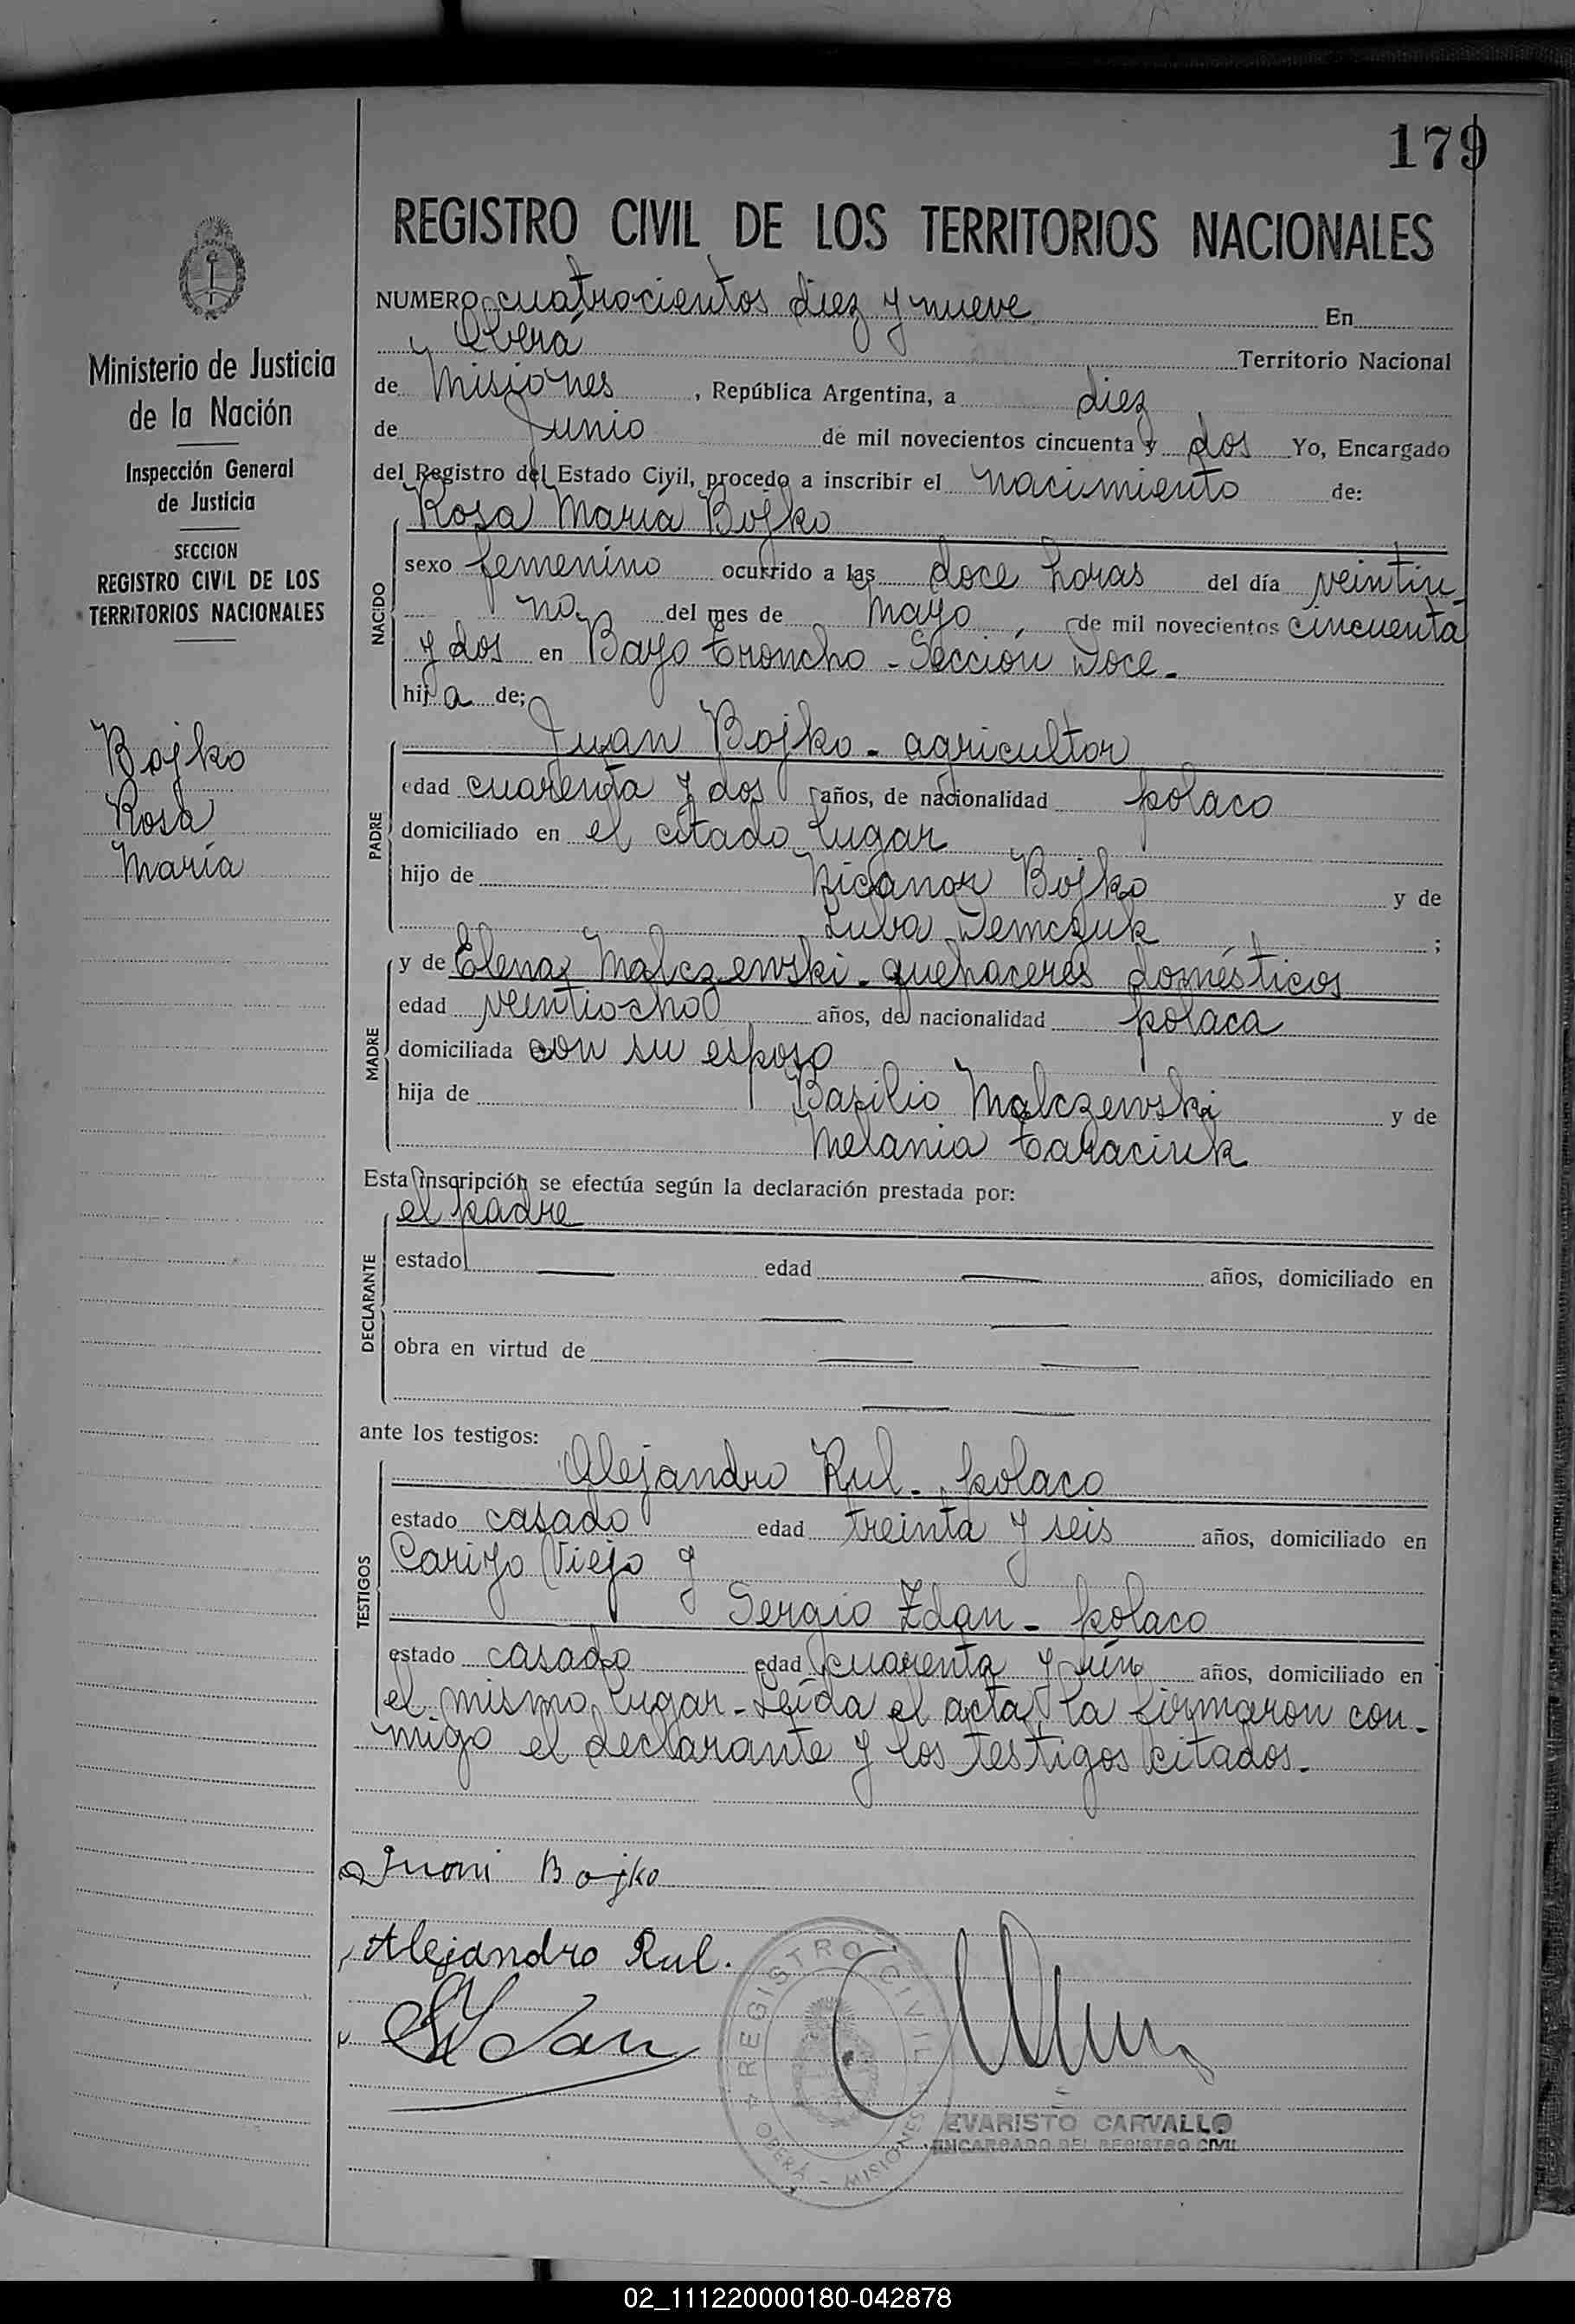 179
REGISTRO CIVIL DE LOS TERRITORIOS NACIONALES
Ministerio de Justicia
de la Nación
Inspección General
de Justicia
SECCION
REGISTRO CIVIL DE LOS
TERRITORIOS NACIONALES
Bojko
Rosa
María
NUMERO cuatrocientos diez y nueve En
Oberá Territorio Nacional
de Misiones, República Argentina, a diez
de Junio de mil novecientos cincuenta y dos Yo, Encargado
del Registro del Estado Civil, procedo a inscribir el nacimiento de:
Rosa María Bojko
NACIDO
sexo femenino ocurrido a las doce horas del día veintiu-
no del mes de mayo, de mil novecientos cincuenta
y dos en Bayo Troncho - Sección Doce.
hija de;
Juan Bojko - agricultor
PADRE
edad cuarenta y dos años, de nacionalidad polaco
domiciliado en el citado lugar
hijo de Nicanor Bojko y de
Luba Demczuk;
MADRE
y de Elena Malczewski - quehaceres domésticos
edad veintiocho años, de nacionalidad polaca
domiciliada con su esposo
hija de Basilio Malczewski y de
Melania Taraciuk
Esta inscripción se efectúa según la declaración prestada por:
el padre
DECLARANTE
estado — edad — años, domiciliado en
— —
obra en virtud de — —
— —
ante los testigos:
Alejandro Rul - polaco
TESTIGOS
estado casado edad treinta y seis años, domiciliado en
Cariyo Viejo y
Sergio Zdan - polaco
estado casado edad cuarenta y un años, domiciliado en
el mismo lugar - Leída el acta, la firmaron con-
migo el declarante y los testigos citados.
Bojko
Alejandro Rul.
SZdan
REGISTRO CIVIL
OBERÁ - MISIONES
EVARISTO CARVALLO
ENCARGADO DEL REGISTRO CIVIL
02_111220000180-042878